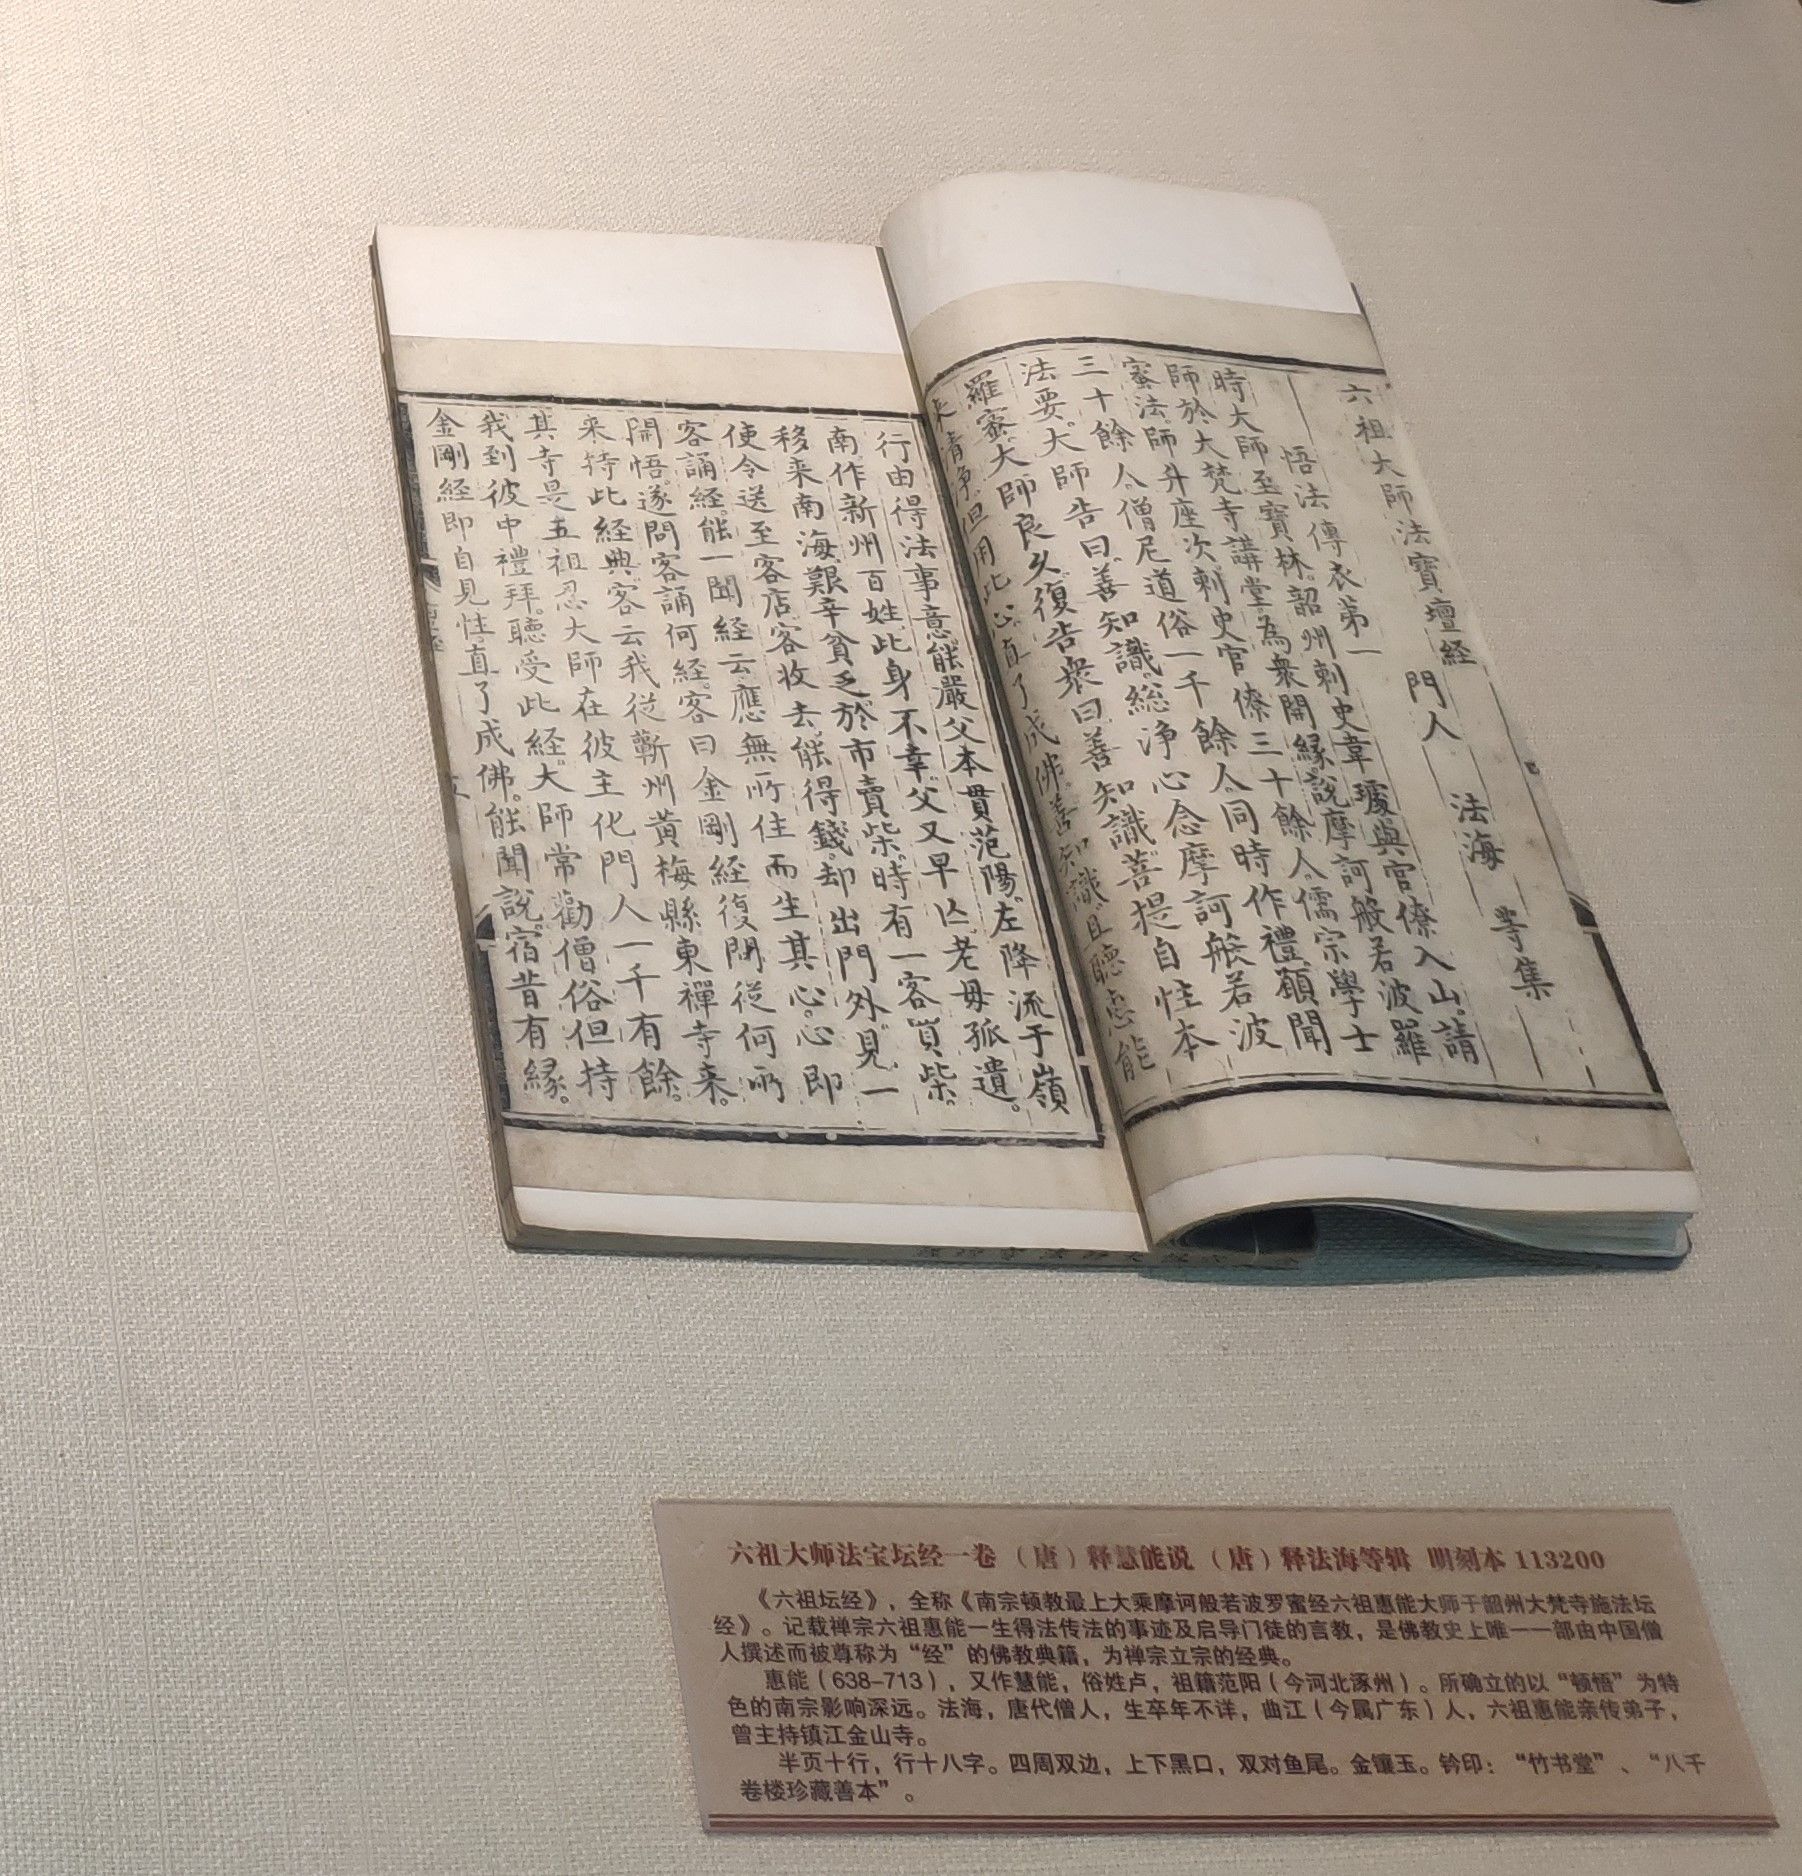 六祖大師法寶壇經
門人　法海　等集
悟法傳衣第一
時大師至寶林。韶州刺史韋璩與官僚入山。請
師於大梵寺講堂。為衆開緣。說摩訶般若波羅
蜜法。師升座次。刺史官僚三十餘人。儒宗學士
三十餘人。僧尼道俗一千餘人。同時作禮。願聞
法要。大師告曰。善知識。總淨心念摩訶般若波
羅蜜。大師良久。復告衆曰。善知識。菩提自性。本
来清淨。但用此心。直了成佛。善知識。且聽惠能
行由得法事意。能嚴父本貫范陽。左降流于嶺
南。作新州百姓。此身不幸。父又早亾。老母孤遺。
移来南海。艱辛貧乏。於市賣柴。時有一客買柴。
使令送至客店。客收去。能得錢。却出門外。見一
客誦經。能一聞經云。應無所住而生其心。心即
開悟。遂問客誦何經。客曰金剛經。復問從何所
来。持此經典。客云我從蘄州黄梅縣東禪寺来。
其寺是五祖忍大師在彼主化。門人一千有餘。
我到彼中禮拜。聽受此經。大師常勸僧俗。但持
金剛經。即自見性。直了成佛。能聞說。宿昔有緣。
六祖大师法宝坛经一卷（唐）释慧能说（唐）释法海等辑 明刻本 113200
《六祖坛经》，全称《南宗顿教最上大乘摩诃般若波罗蜜经六祖惠能大师于韶州大梵寺施法坛
经》。记载禅宗六祖惠能一生得法传法的事迹及启导门徒的言教，是佛教史上唯一一部由中国僧
人撰述而被尊称为“经”的佛教典籍，为禅宗立宗的经典。
惠能（638-713），又作慧能，俗姓卢，祖籍范阳（今河北涿州）。所确立的以“顿悟”为特
色的南宗影响深远。法海，唐代僧人，生卒年不详，曲江（今属广东）人，六祖惠能亲传弟子，
曾主持镇江金山寺。
半页十行，行十八字。四周双边，上下黑口，双对鱼尾。金镶玉。钤印：“竹书堂”、“八千
卷楼珍藏善本”。